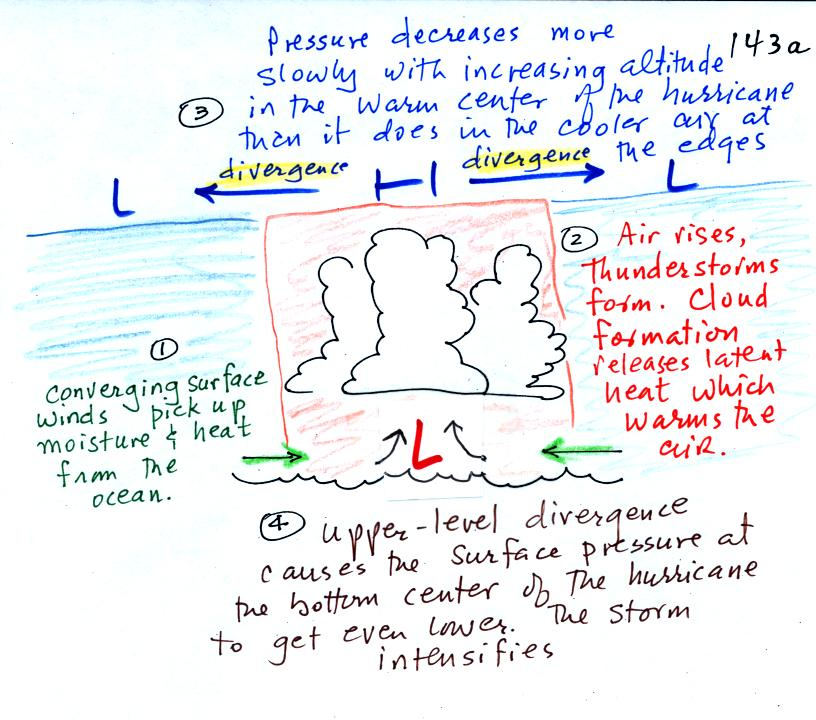 143a
Pressure decreases more
slowly with increasing altitude
③ in the warm center of the hurricane
than it does in the cooler air at
the edges
L divergence H divergence L
② Air rises,
thunderstorms
form. Cloud
formation
releases latent
heat which
warms the
air.
①
converging surface
winds pick up
moisture & heat
from the
ocean.
L
④ upper-level divergence
causes the surface pressure at
the bottom center of the hurricane
to get even lower. The storm
intensifies